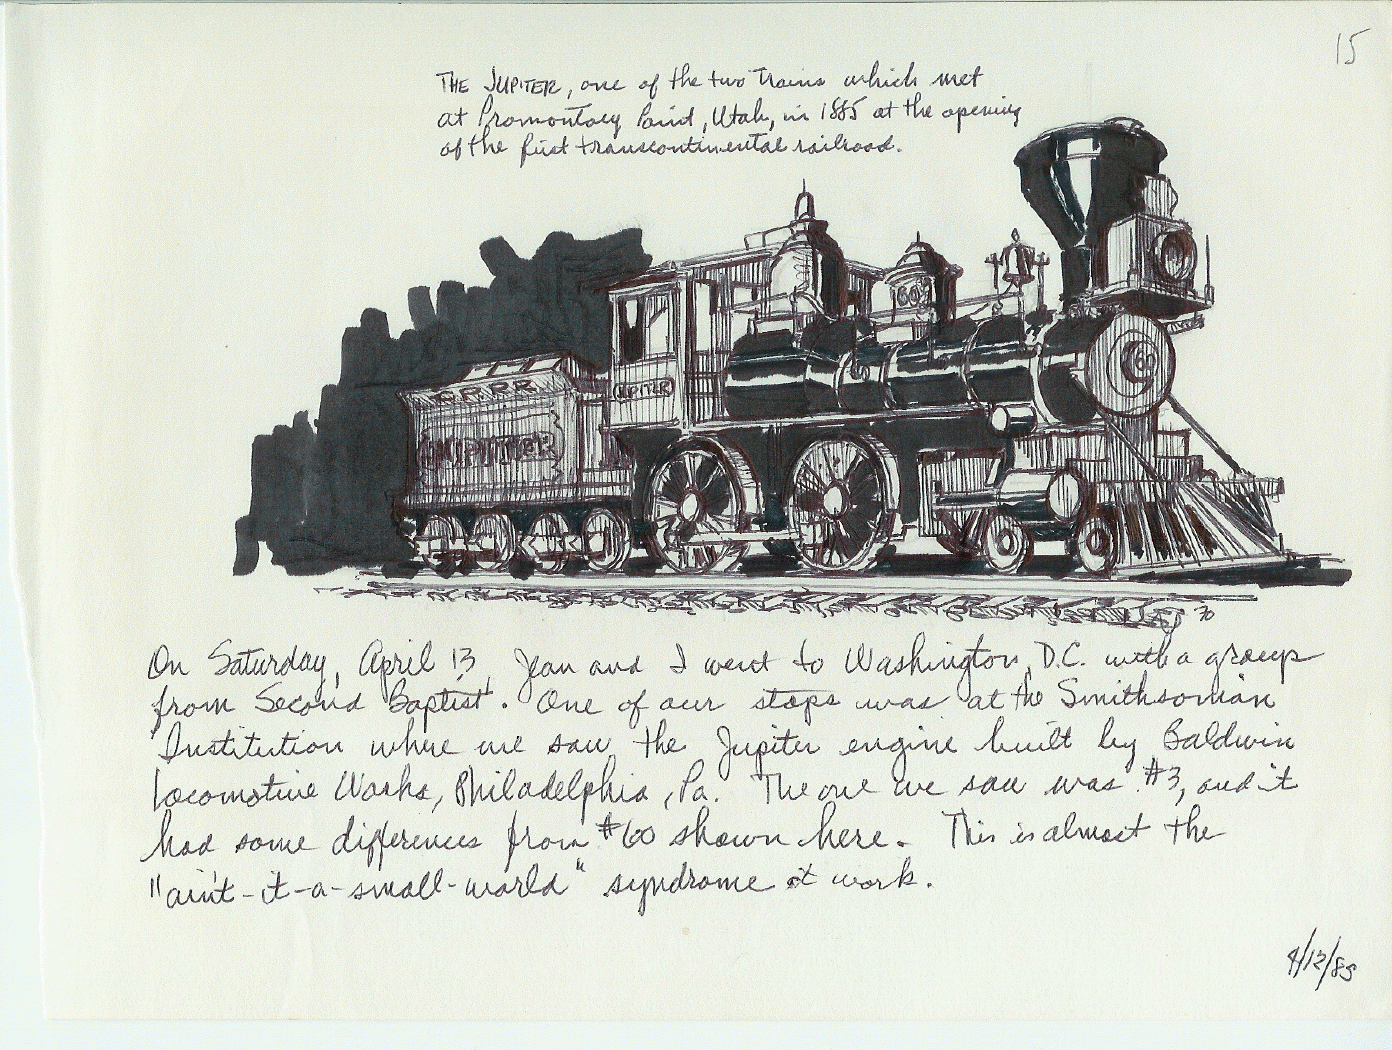 15
THE JUPITER, one of the two trains which met
at Promontory Point, Utah, in 1885 at the opening
of the first transcontinental railroad.
60
60
JUPITER
C.P.R.R.
JUPITER
On Saturday, April 13, Jean and I went to Washington, D.C. with a group
from Second Baptist. One of our stops was at the Smithsonian
Institution where we saw the Jupiter engine built by Baldwin
Locomotive Works, Philadelphia, Pa. The one we saw was #3, and it
had some differences from #60 shown here. This is almost the
"ain't-it-a-small-world" syndrome at work.
4/12/85